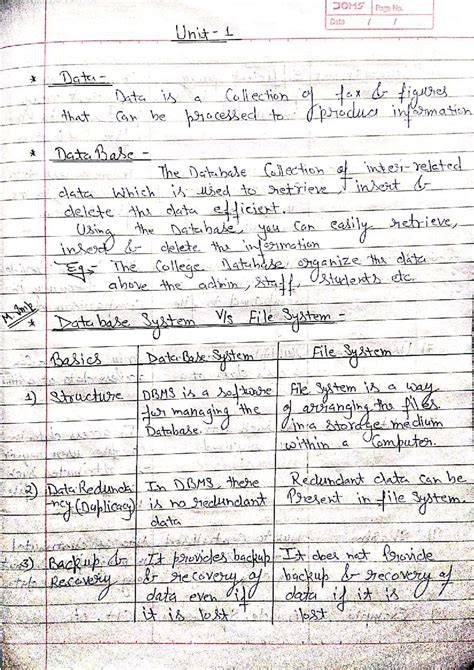 DOMS Page No.
Date / /
Unit - 1
* Data -
Data is a Collection of fax & figures
that can be processed to produce information
* Data Base -
The Database Collection of inter-related
data which is used to retrieve, insert &
delete the data efficient.
Using the Database, you can easily retrieve,
insert & delete the information
Eg - The College Database organize the data
above the admin, staff, students etc.
M. Imp
* Database System V/s File System -
Basics Data-Base System File System
1) Structure DBMS is a software File System is a way
for managing the of arranging the files
Database. in a storage medium
within a Computer.
2) Data Redunda- In DBMS, there Redundant data can be
ncy (Duplicacy) is no redundant Present in file System.
data
3) Backup & It provides backup It does not Provide
Recovery & recovery of backup & recovery of
data even if data if it is
it is lost lost